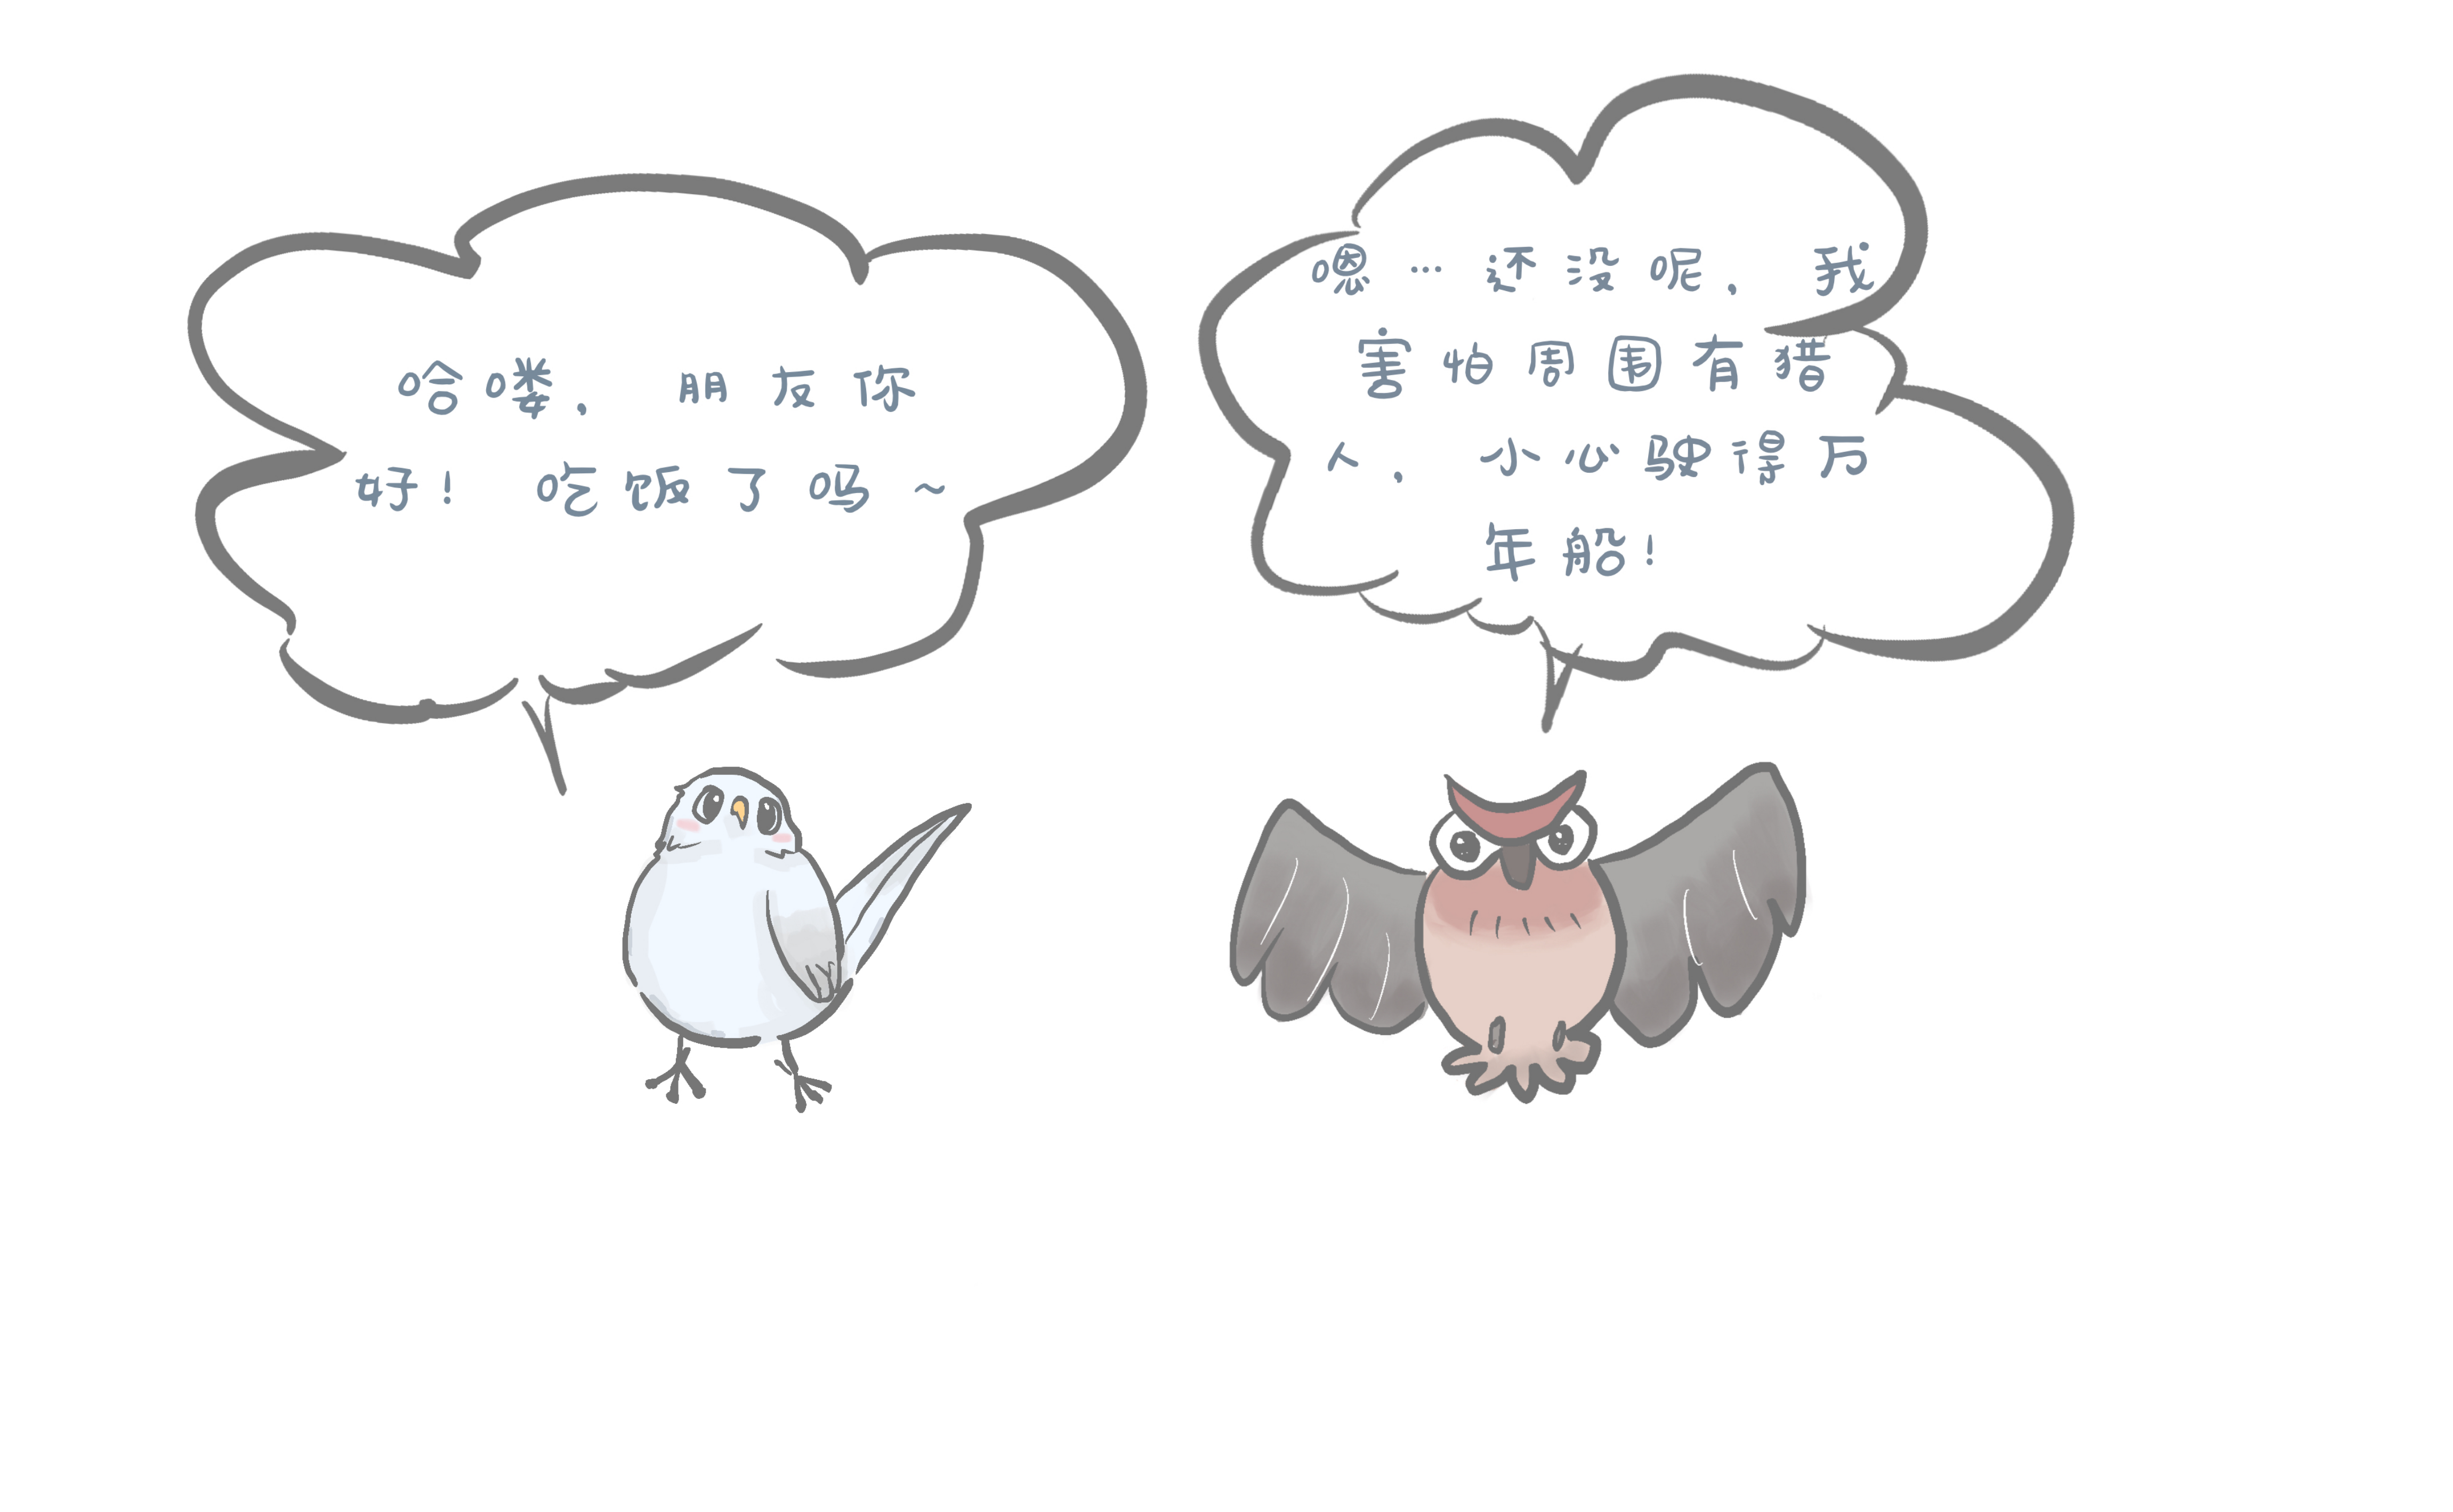 哈喽，朋友你
好！吃饭了吗~
嗯…还没呢，我
害怕周围有猎
人，小心驶得万
年船！